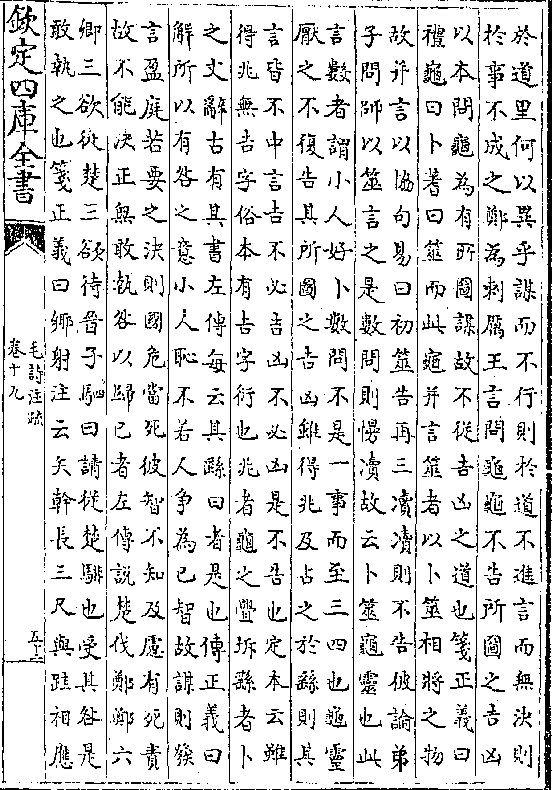 於道里何以異乎謀而不行則於道不進言而無決則
於事不成之鄭為刺厲王言問龜龜不告所圖之吉凶
以本問龜為有所圖謀故不從吉凶之道也箋正義曰
禮龜曰卜蓍曰筮而此龜并言筮者以卜筮相將之物
故并言以協句易曰初筮告再三瀆瀆則不告彼論弟
子問師以筮言之是數問則慢瀆故云卜筮龜靈也此
言數者謂小人好卜數問不是一事而至三四也龜靈
厭之不復告其所圖之吉凶雖得兆及占之於繇則其
言皆不中言吉不必吉凶不必凶是不告也定本云雖
得兆無吉字俗本有吉字衍也兆者龜之舋坼繇者卜
之文辭古有其書左傳每云其繇曰者是也傳正義曰
解所以有咎之意小人恥不若人爭為已智故謀則發
言盈庭若要之決則國危當死彼智不知及慮有死責
故不能決正無敢執咎以歸已者左傳說楚伐鄭鄭六
卿三欲從楚三欲待晉子駟曰請從楚騑也受其咎是
敢執之也箋正義曰鄉射注云矢幹長三尺與跬相應
欽定四庫全書
毛詩注疏
卷十九
五十二